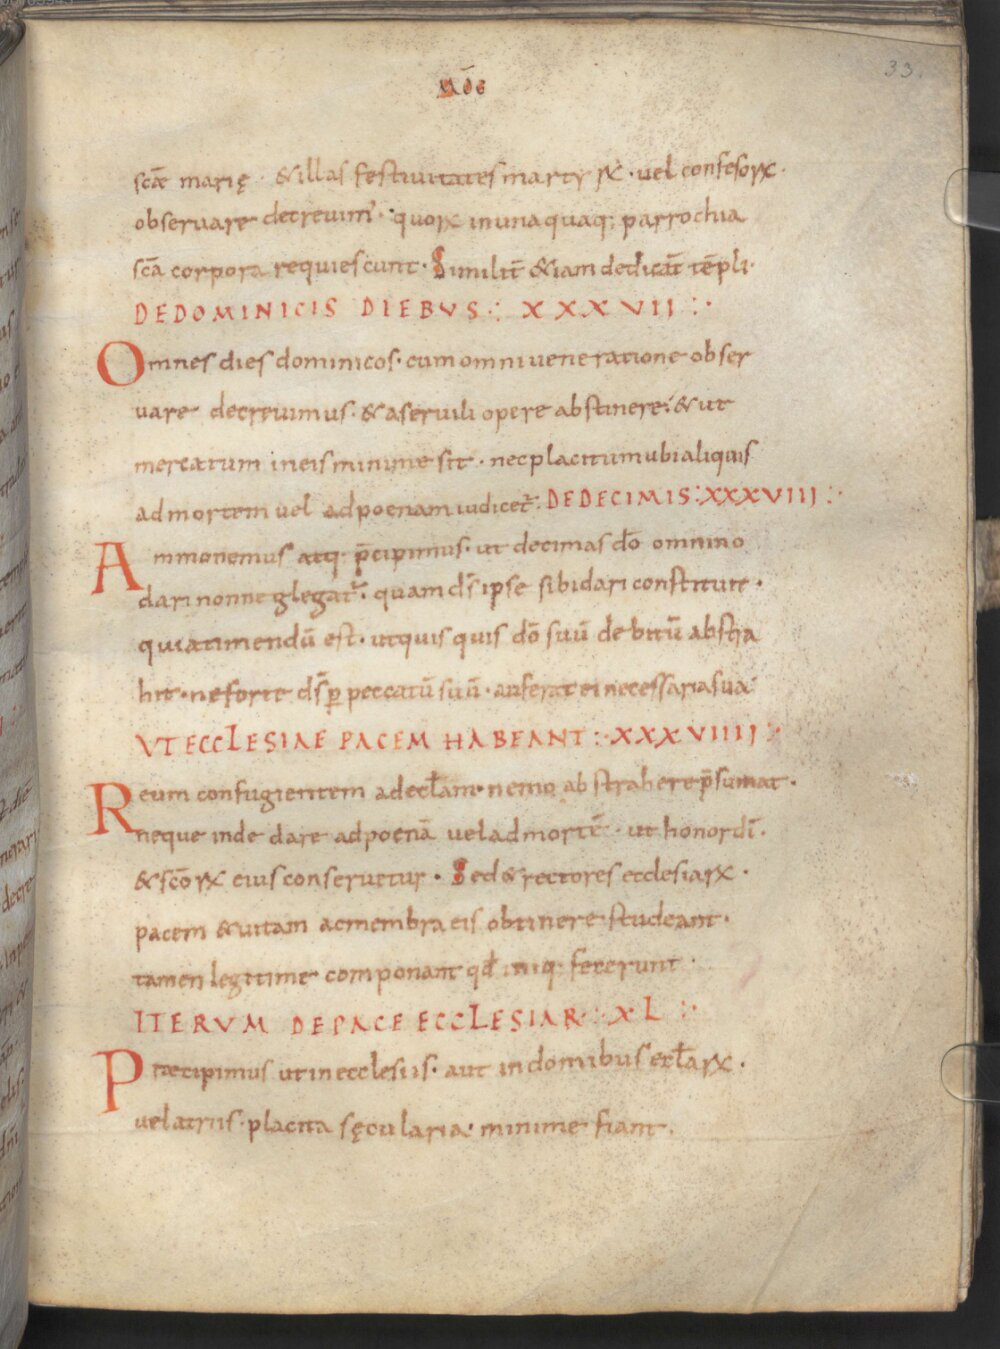 33.
scē marię · & illas festiuitates martyrꝝ · uel confesorꝝ ·
obseruare decreuim᾽ · quorꝝ in unaquaq; parrochia
scā corpora requiescunt · Similit̄ & iam dedicat̄ tēpli ·
DE DOMINICIS DIEBVS ∴ XXXVII ∴
Omnes dies dominicos · cum omni ueneratione obser
uare decreuimus · & a seruili opere abstinere · & ut
mercatum in eis minime sit · nec placitum ubi aliquis
ad mortem uel ad poenam iudicet᷑ · DE DECIMIS ∴ XXXVIII ∴
Ammonemus atq; p̄cipimus · ut decimas dō omnino
dari non neglegat᷑ · quam dš ipse sibi dari constituit ·
quia timendū est · ut quisquis dō suū debitū abstra
hit · ne forte dš ꝑ peccatū suū · auferat ei necessaria sua ·
VT ECCLESIAE PACEM HABEANT ∴ XXXVIIII ∴
Reum confugientem ad eccłam nemo abstrahere p̄sumat ·
neque inde dare ad poenā uel ad mortē · ut honor dī ·
& scōrꝝ eius conseruetur · Sed & rectores ecclesiarꝝ ·
pacem & uitam ac membra eis obtinere studeant ·
tamen legitime componant qđ iniq; fecerunt ·
ITERVM DE PACE ECCLESIAR ∴ XL ∴
Praecipimus ut in ecclesiis · aut in domibus eccłarꝝ ·
uel atriis · placita sęcularia minime fiant ·